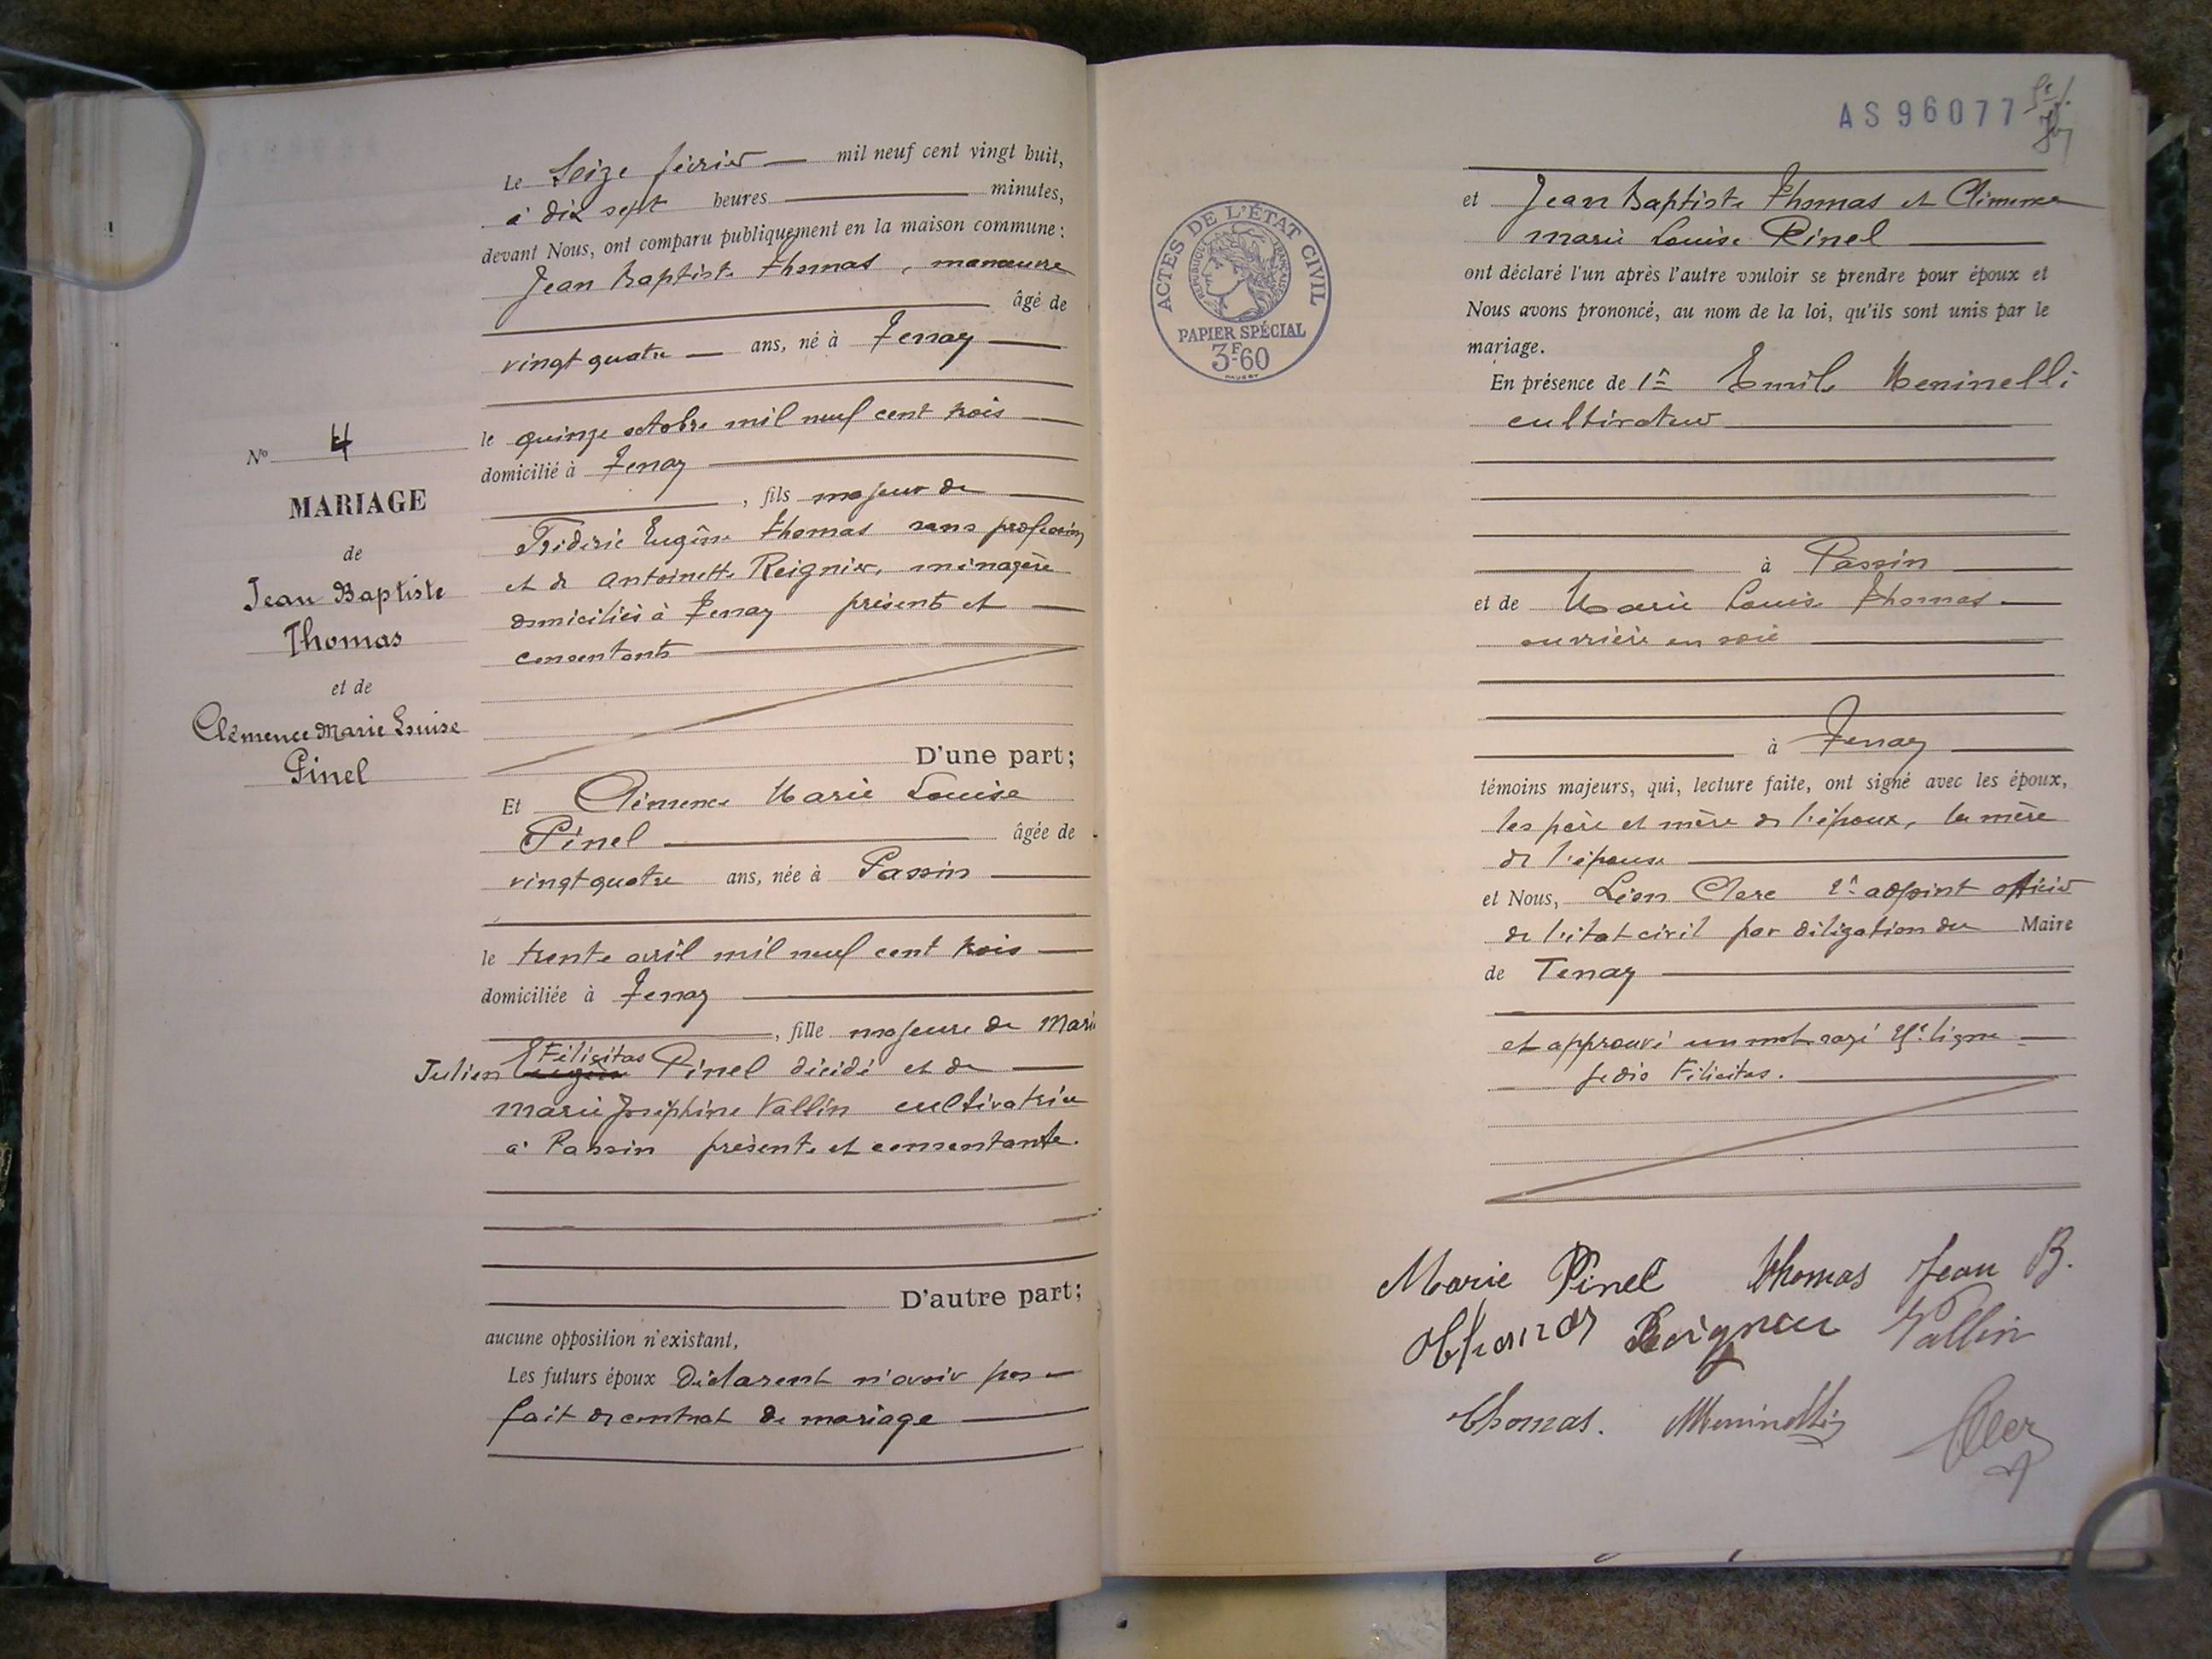 Le Seize février mil neuf cent vingt huit,
à dix sept heures minutes,
devant Nous, ont comparu publiquement en la maison commune :
Jean Baptiste Thomas, manœuvre
âgé de
vingt quatre ans, né à Tenay
le quinze octobre mil neuf cent trois
domicilié à Tenay
, fils majeur de
Frédéric Eugène Thomas sans profession
et de Antoinette Reignier, ménagère
domiciliés à Tenay présents et
consentants
D'une part;
Et Clémence Marie Louise
Pinel âgée de
vingt quatre ans, née à Passin
le trente avril mil neuf cent trois
domiciliée à Tenay
, fille majeure de Marie
Julien Eugène Félicitas Pinel décédé et de
Marie Joséphine Vallin cultivatrice
à Passin présente et consentante.
D'autre part;
aucune opposition n'existant,
Les futurs époux déclarent n'avoir pas
fait de contrat de mariage
No 4
MARIAGE
de
Jean Baptiste
Thomas
et de
Clémence Marie Louise
Pinel
AS96077
ACTES DE L'ÉTAT CIVIL
RÉPUBLIQUE FRANÇAISE
PAPIER SPÉCIAL
3F.60
et Jean Baptiste Thomas et Clémence
Marie Louise Pinel
ont déclaré l'un après l'autre vouloir se prendre pour époux et
Nous avons prononcé, au nom de la loi, qu'ils sont unis par le
mariage.
En présence de 1r Emile Meninelli
cultivateur
à Passin
et de Marie Louise Thomas
ouvrière en soie
à Tenay
témoins majeurs, qui, lecture faite, ont signé avec les époux,
les père et mère de l'époux, la mère
de l'épouse
et Nous, Léon Clerc 1r adjoint officier
de l'état civil par délégation du Maire
de Tenay
et approuvé un mot rayé ligne
je dis Félicitas.
Marie Pinel Thomas Jean B.
Thomas Reignier Vallin
Thomas. Meninelli Clerc